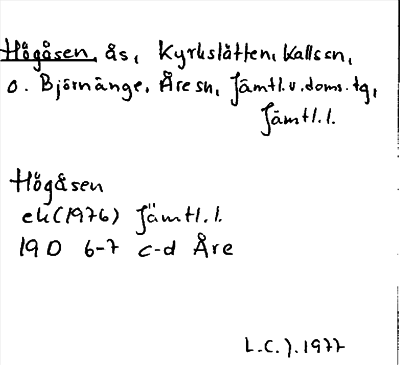 Högåsen, ås, Kyrkslåtten, Kallssn,
o. Björnänge, Åre sn, Jämtl. v. doms. tg,
Jämtl. l.
Högåsen
ek (1976) Jämtl. l.
19 D 6-7 c-d Åre
L.C.J. 1977